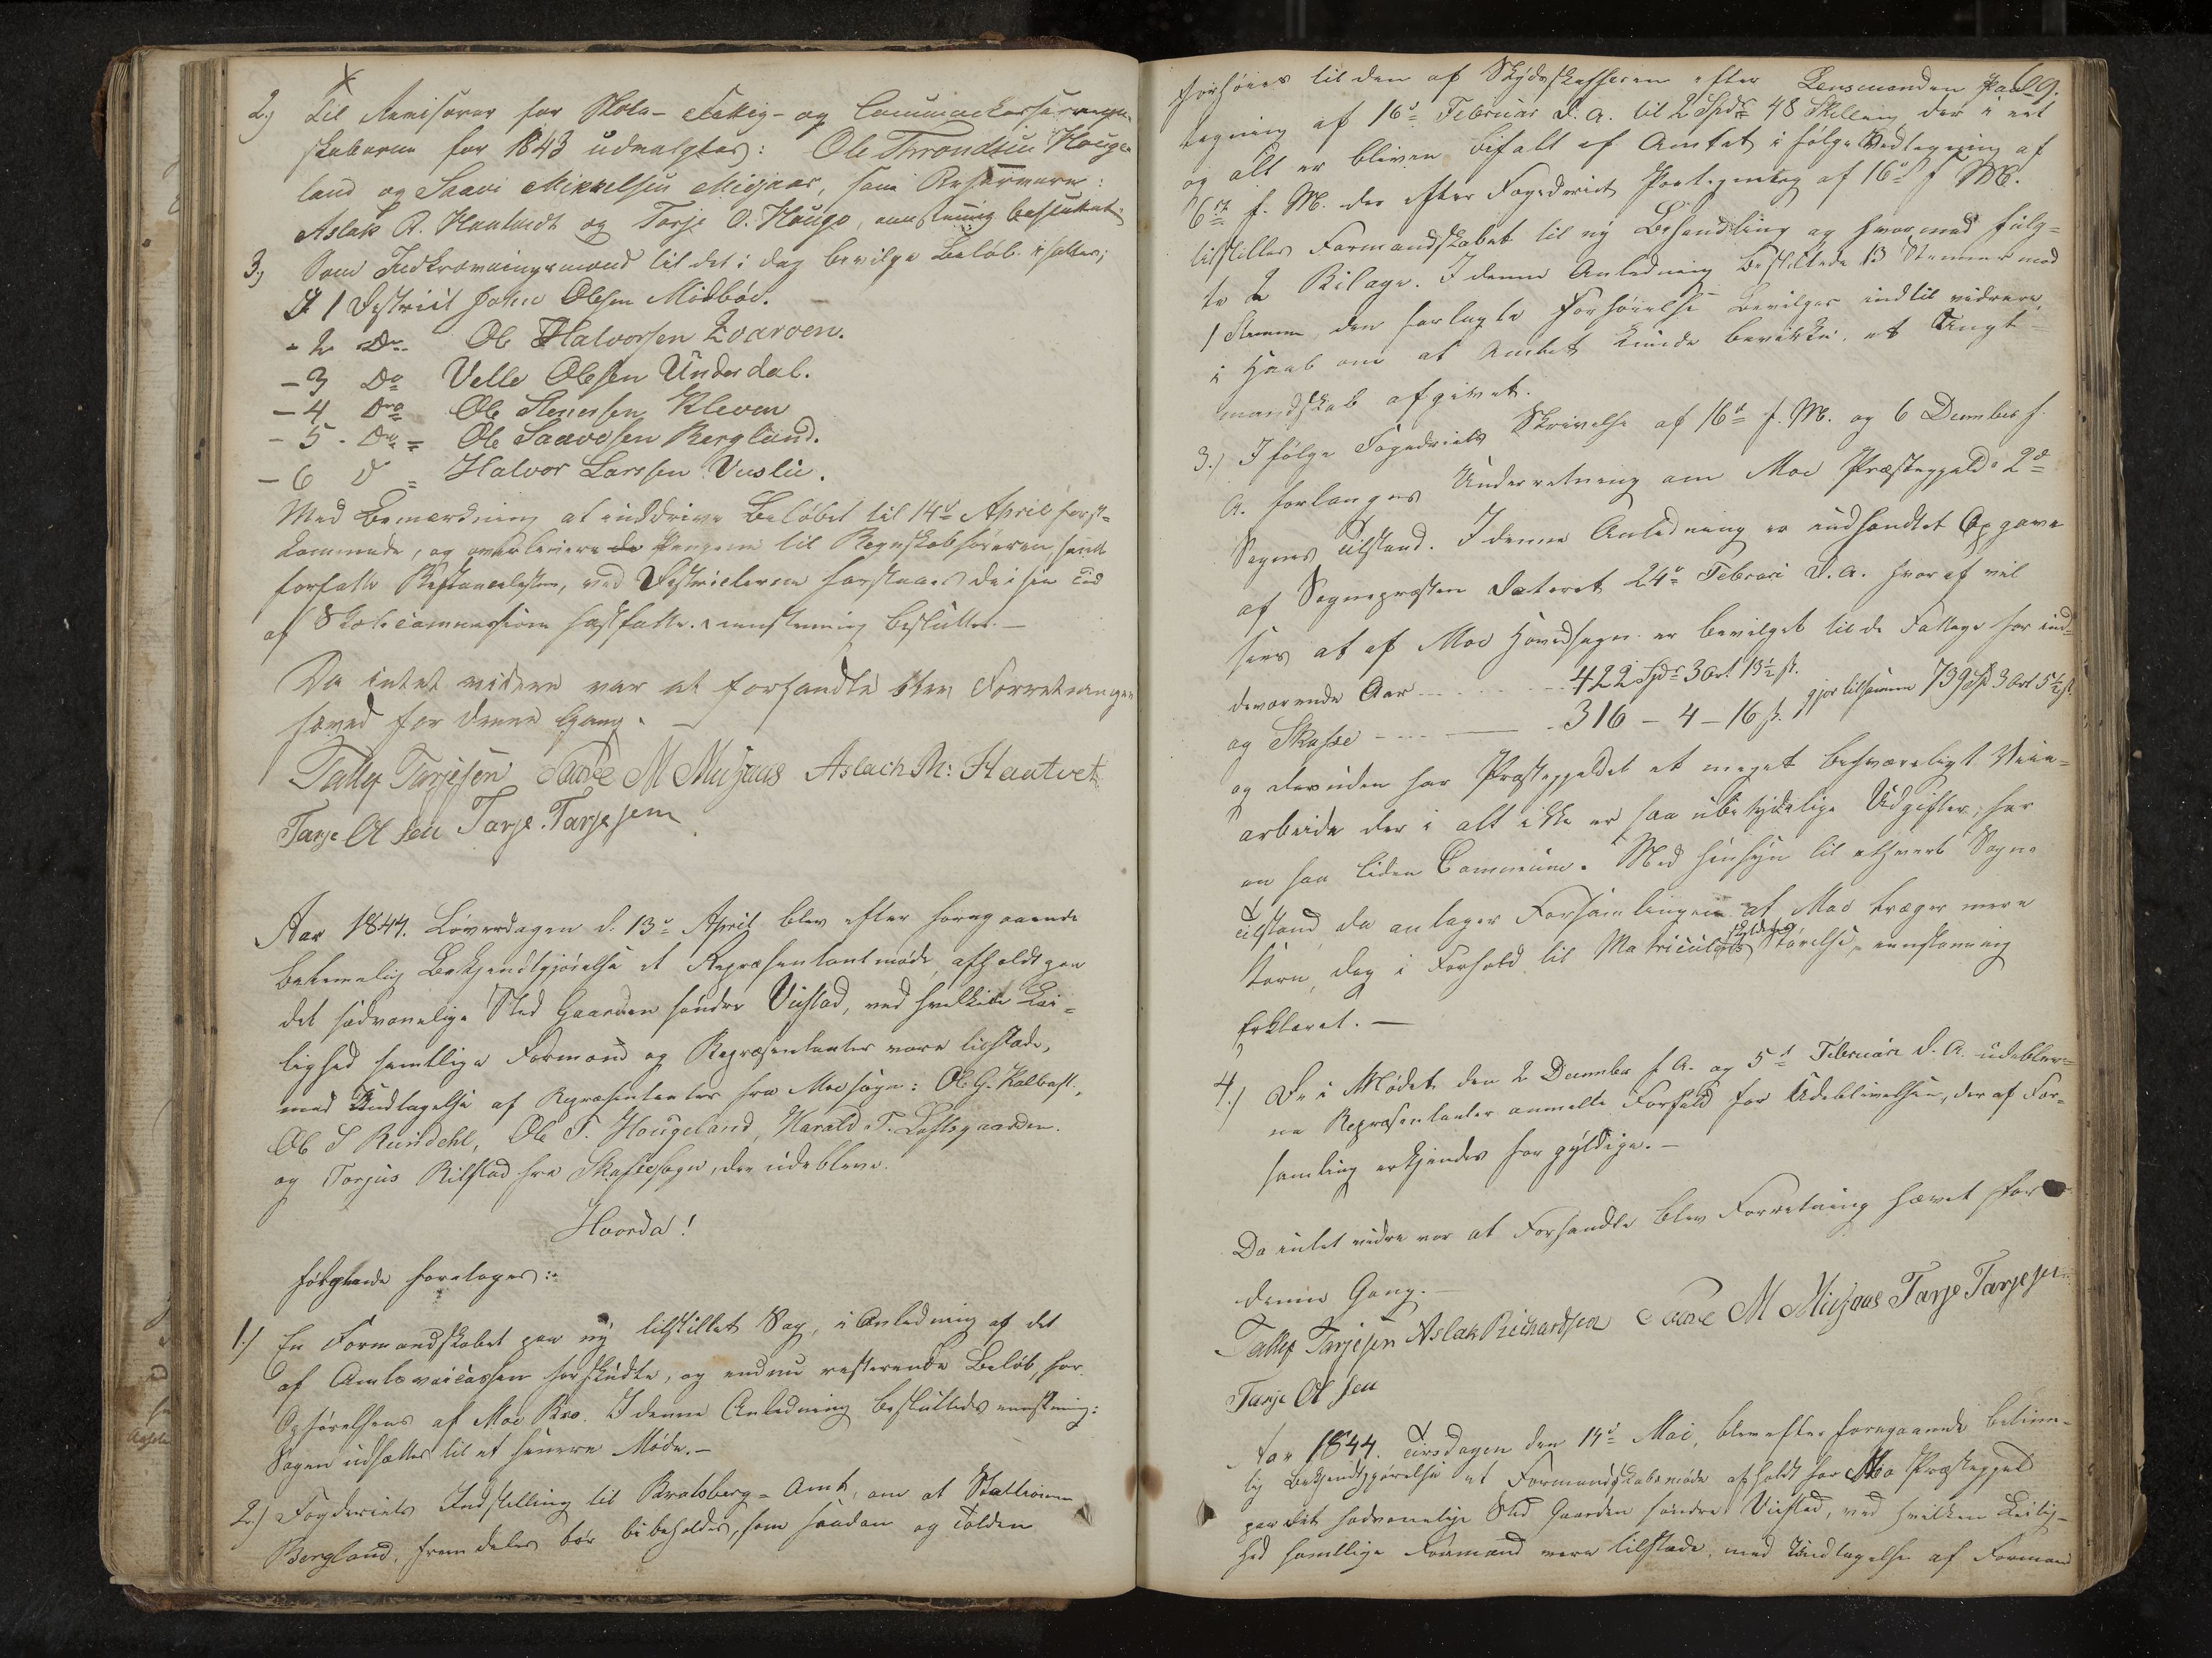 2.) Til Revisorer for Skole- Fattig- og Communekasseregn-
skaberne for 1843 udvalgtes: Ole Throndsen Houge-
land og Saavi Mikkelsen Migjaas, som Reservere:
Aslak R. Haatvedt og Tarje O. Haugo, eenstemig besluttet
3.) Som Indkrævningsmænd til det i dag bevilge Beløb isættes;
I 1 Distrikt John Olsen Midbøe.
- 2 Do Ole Halvorsen Qvarven.
- 3 Do Velle Olesen Underdal.
- 4 Do Ole Stenersen Kleven
- 5 - Do = Ole Saavesen Bergland.
- 6 D = Halvor Larssen Vuslie.
Med Bemærkning at inddrive Beløbet til 14de April først-
kommende, og overlevere de Pengene til Regnskabsføreren, samt
forfatte Restancelisten, ved Distrikterne forstaaes de i sin Tid
af Skolecommissionen fastsatte. eenstemmig besluttet. —
Da intet videre var at forhandle blev Forretningen
hævet for denne Gang. —
Tallef Tarjesen Saave M Migjaas Aslach R: Haatvet
Tarje Olsen Tarje. Tarjesen
Aar 1844. Løverdagen d. 13de April blev efter foregaaende
betimelig Bekjendtgjørelse et Repræsentantmøde afholdt paa
det sædvanelige Sted Gaarden søndre Viestad, ved hvilken Lei-
lighed samtlige Formænd og Repræsentanter vare tilstæde,
med Undtagelse af Repræsentanter fra Moe sogn: Ole G. Kalbast,
Ole S Rundehl, Ole T. Hougeland, Harald T. Loftsgaarden.
og Torjus Rilstad fra Skafsesogn, der udebleve.
Hvorda!
følgende foretoges:
1.) En Formandskabet paa ny tilstillet Sag, i Anledning af det
af Amtsveicassen forskudte, og endnu resterende Beløb, for
Opførelsens af Moe Bro. I denne Anledning besluttedes eenstemig:
Sagen udsættes til et senere Møde. —
2.) Fogderiets Indstilling til Bratsberg-Amt, om at Stationen
Bergland, fremdeles bør bibeholdes, som saadan og Tolden
69.
forhøies til den af Skydsskafferen efter Lensmanden Paa-
tegning af 16de Februar d. A. til 2 Spdr 48 Skilling der i eet
og alt er bleven bifalt af Amtet i følge Paategning af
6te f. M. der efter Fogderiets Paategning af 16de f M.
tilstilles Formandskabet til ny Behandling og hvormed fulg-
te 2 Bilage. I denne Anledning besluttede 13 Stemmer mod
1 Stemme, den forlagte Forhøielse bevilges indtil videre,
i Haab om at Amtet kunde bevirke, et
mandskab afgivet.
3.) I følge Fogderiets Skrivelse af 16de f. M. og 6 December f.
A. forlanges Underretning om Moe Præstegjelds 2de
Sognes Tilstand. I denne Anledning er indhændtet Opgave
af Sognepræsten dateret 24de Februari d. A. hvoraf vil
sees at af Moe Hovedsogn er bevilget til de Fattige for ind-
deværende Aar - - - - - - - 422 Spdr 3 Ort 13½ s.
og Skafse - - - — - 316 - 4 - 16 s. gjør tilsamme 739 Spd 3 Ort 5½ s.
og desuden har Præstegjeldet et meget besværeligt Veie-
arbeide der i alt ikke er saa ubetydelige Udgifter, for
en saa liden Commune. Med Hensyn til ethvert Sogns
Tilstand, da antager Forsamlingen at Moe træger mere
Korn, dog i Forhold til Matriculens skyldens Størelse, eenstemmig
Erklæret. —
4.) De i Mødet den 2 December f A. og 5te Februari d. A. udeblev-
ne Repræsentanter anmelte Forfald for Udeblivelsen, der af For-
samling erkjendes for gyldige. —
Da intet vidre var at Forhandle blev Forretning hævet for
denne Gang. —
Tallef Tarjesen Aslak Richardsen Saave M Migjaas Tarje Tarjesen
Tarje Olsen
Aar 1844. Tirsdagen den 14de Mai, blev efter foregaaende betime-
lig Bekjendtgjørelse et Formandskabsmøde afholdt for Mo Præstegjeld
paa det sædvanelige Sted Gaarden søndre Viestad, ved hvilken Leilig-
hed samtlige Formænd vare tilstæde, med Undtagelse af Formand